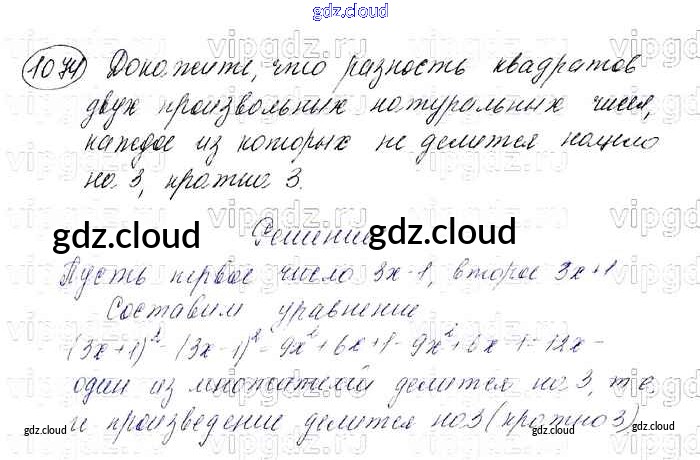 gdz.cloud
1074 Докажите, что разность квадратов
двух произвольных натуральных чисел,
каждое из которых не делится нацело
на 3, кратна 3.
gdz.cloud Решение gdz.cloud
Пусть первое число 3x-1, второе 3x+1
Составим уравнение
(3x+1)² - (3x-1)² = 9x²+6x+1-9x²+6x-1=12x-
один из множителей делится на 3, т.е.
и произведение делится на 3 (кратно 3)
gdz.cloud gdz.cloud gdz.cloud